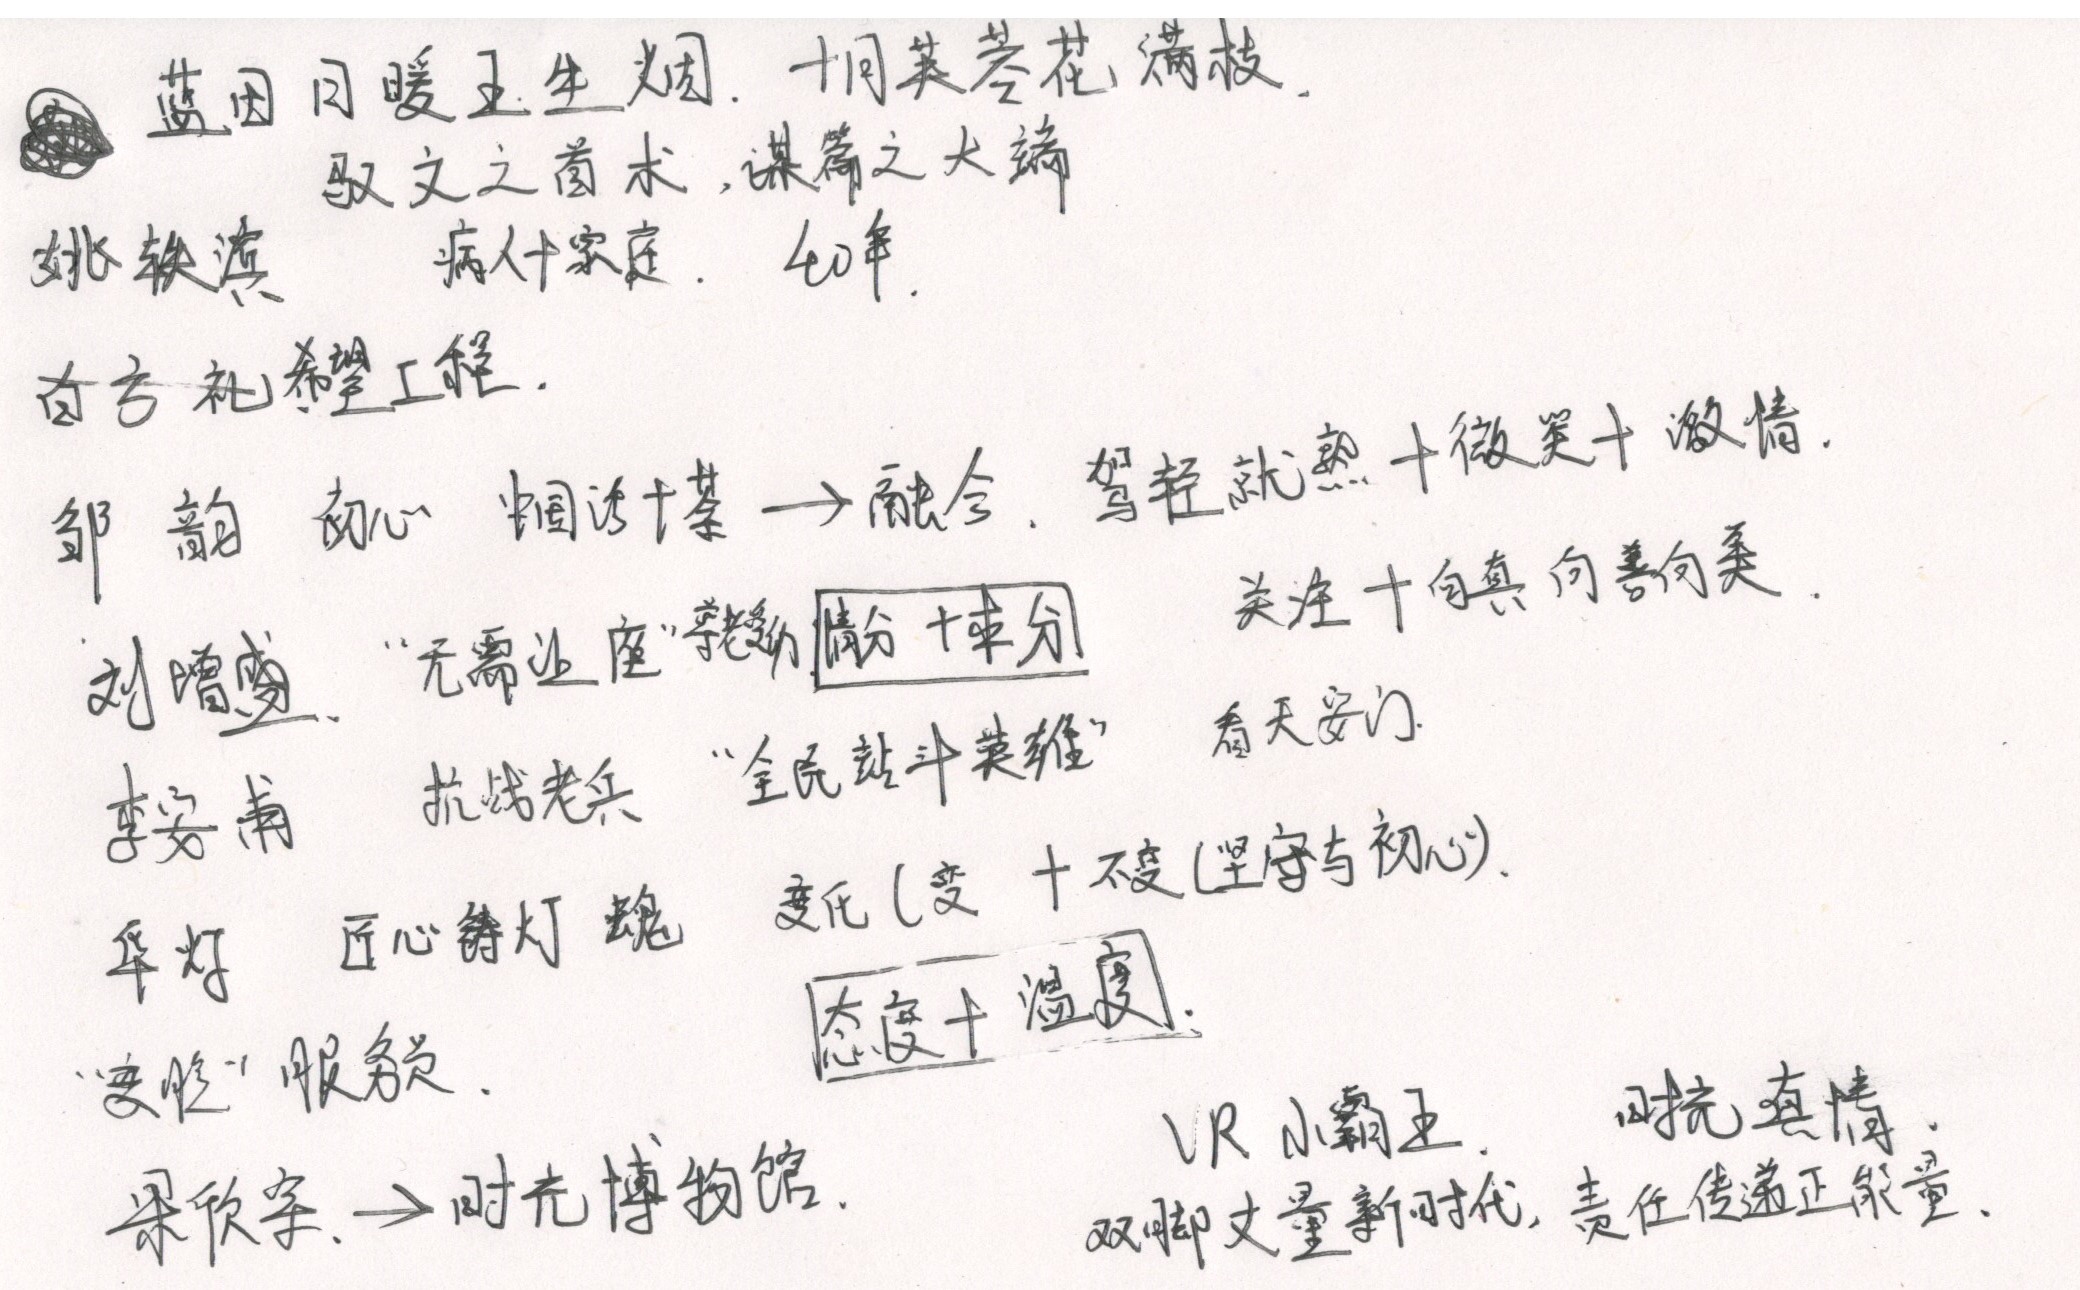 蓝田日暖玉生烟. 十月芙蓉花满枝.
驭文之首术,谋篇之大端
姚轶滨 病人+家庭. 40年.
白方礼希望工程.
邹韵 初心 中国汤+茶→融合. 驾轻就熟+微笑+激情.
关注+向真向善向美.
刘增盛. “无需让座”尊老爱幼 情分+本分
李安甫 抗战老兵 “全民战斗英雄” 看天安门.
华灯 匠心铸灯魂 变化(变+不变(坚守与初心).
态度+温度.
“变脸”服务员.
VR小霸王. 时光真情.
梁欣 → 时光博物馆.
双脚丈量新时代,责任传递正能量.